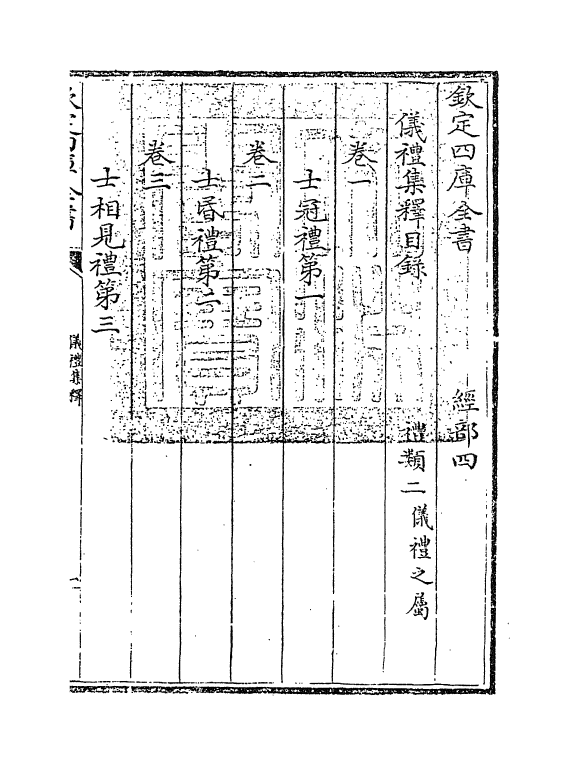 欽定四庫全書 經部四
儀禮集釋目錄 禮類二儀禮之屬
卷一
士冠禮第一
卷二
士昏禮第二
卷三
士相見禮第三
欽定四庫全書
儀禮集釋